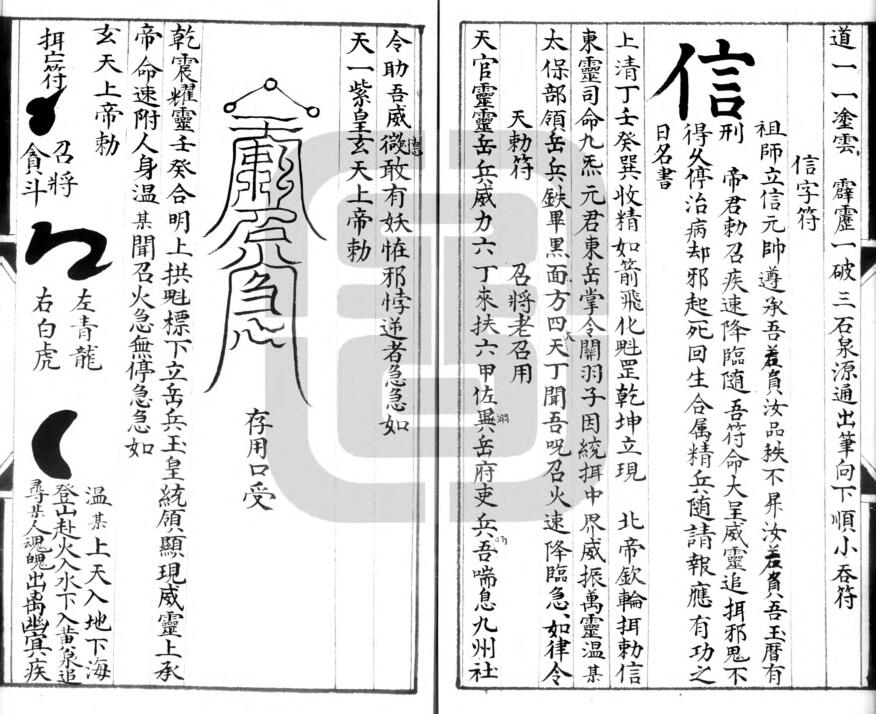 道一一塗雲 霹靂一破三石泉源通出筆向下順小吞符
信字符
祖師立信元帥遵承吾若負汝品秩不昇汝若負吾玉曆有
刑 帝君勅召疾速降臨隨吾符命大呈威靈追捉邪鬼不
得久停治病却邪起死回生合属精兵随請報應有功之
日名書
信
上清丁壬癸巽收精如箭飛化魁罡乾坤立現 北帝欽輪捉勅信
東靈司命九炁元君東岳掌令關羽子因統捉中界威振萬靈温某
太保部領岳兵鉄畢黑面方四天丁聞吾呪召火速降臨急如律令
天勅符 召將老召用
天官靈靈岳兵威力六丁來扶六甲佐巽岳府吏兵吾喘息九州社
令助吾威德敢有妖恠邪悖逆者急急如
天一紫皇玄天上帝勅
存用口受
乾震耀靈壬癸合明上拱魁標下立岳兵玉皇統領顯現威靈上承
帝命速附人身温某聞召火急無停急急如
玄天上帝勅
捉亡符
召將
貪斗
左青龍
右白虎
温某上天入地下海
登山赴火入水下入黄泉追
尋某人魂魄出离幽冥疾